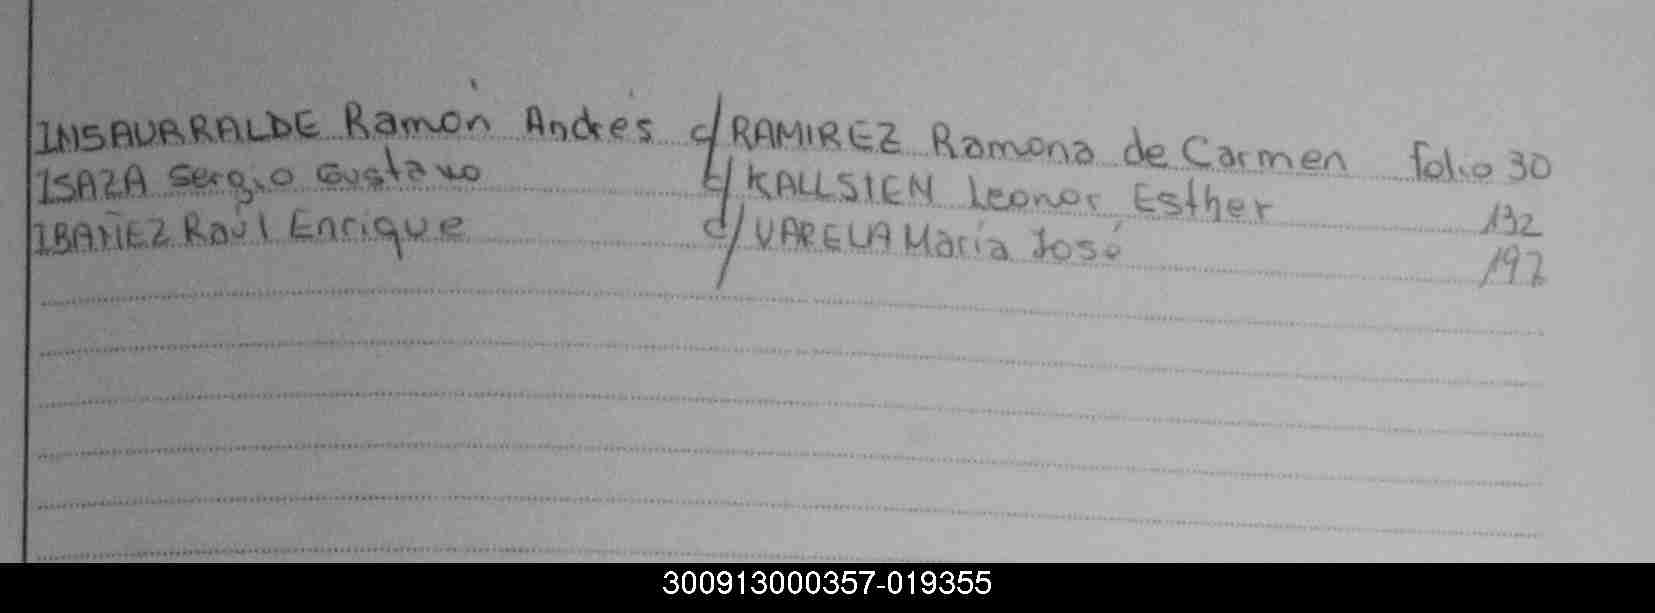 INSAURRALDE Ramón Andrés c/ RAMIREZ Ramona de Carmen folio 30
ISAZA Sergio Gustavo c/ KALLSTEN Leonor Esther 132
IBAÑEZ Raúl Enrique c/ VARELA María José 197
300913000357-019355